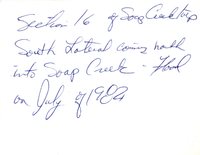 Section 16 of Soap Creek top
South Lateral coming north
into Soap Creek - Flood
on July of 1982